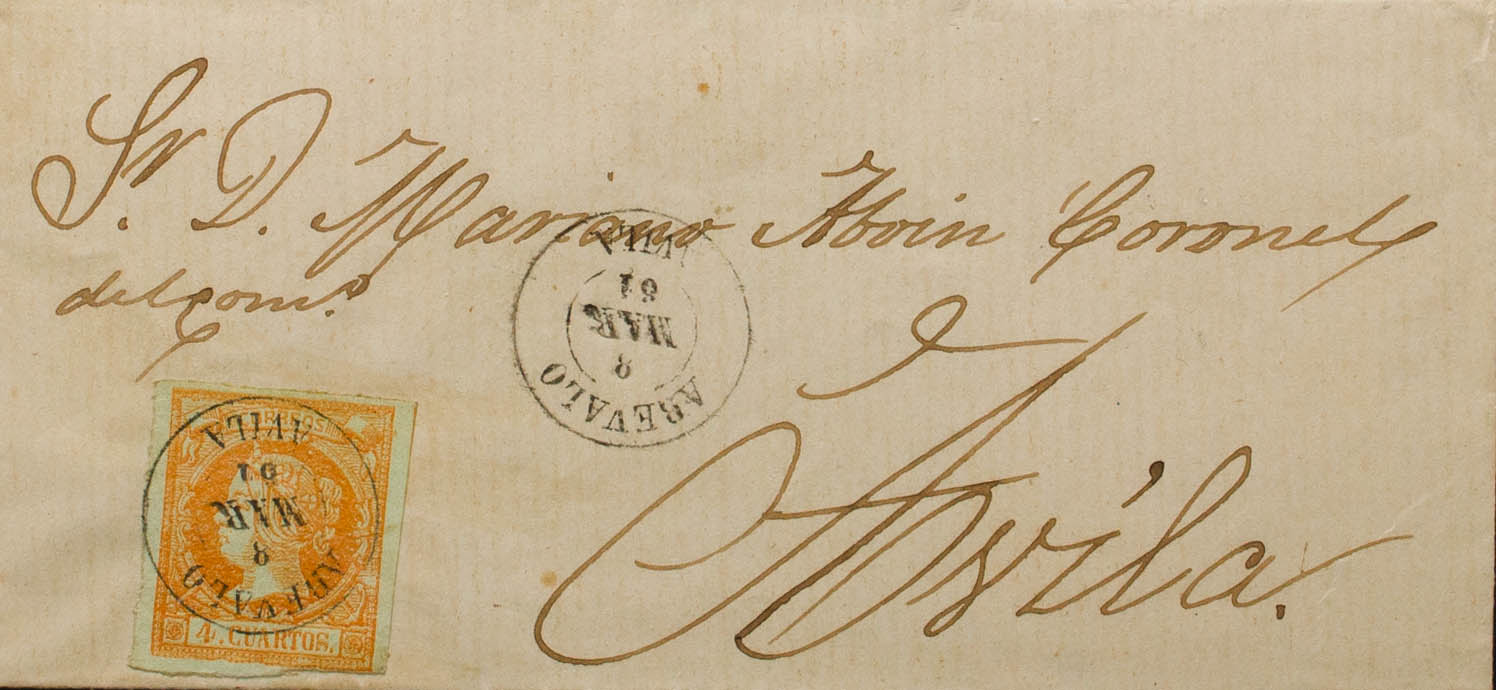 Sr. D. Mariano Aboin Coronel
del Com.º
Avila.
AREVALO
8
MAR
61
AVILA
AREVALO
8
MAR
61
AVILA
4 CUARTOS.